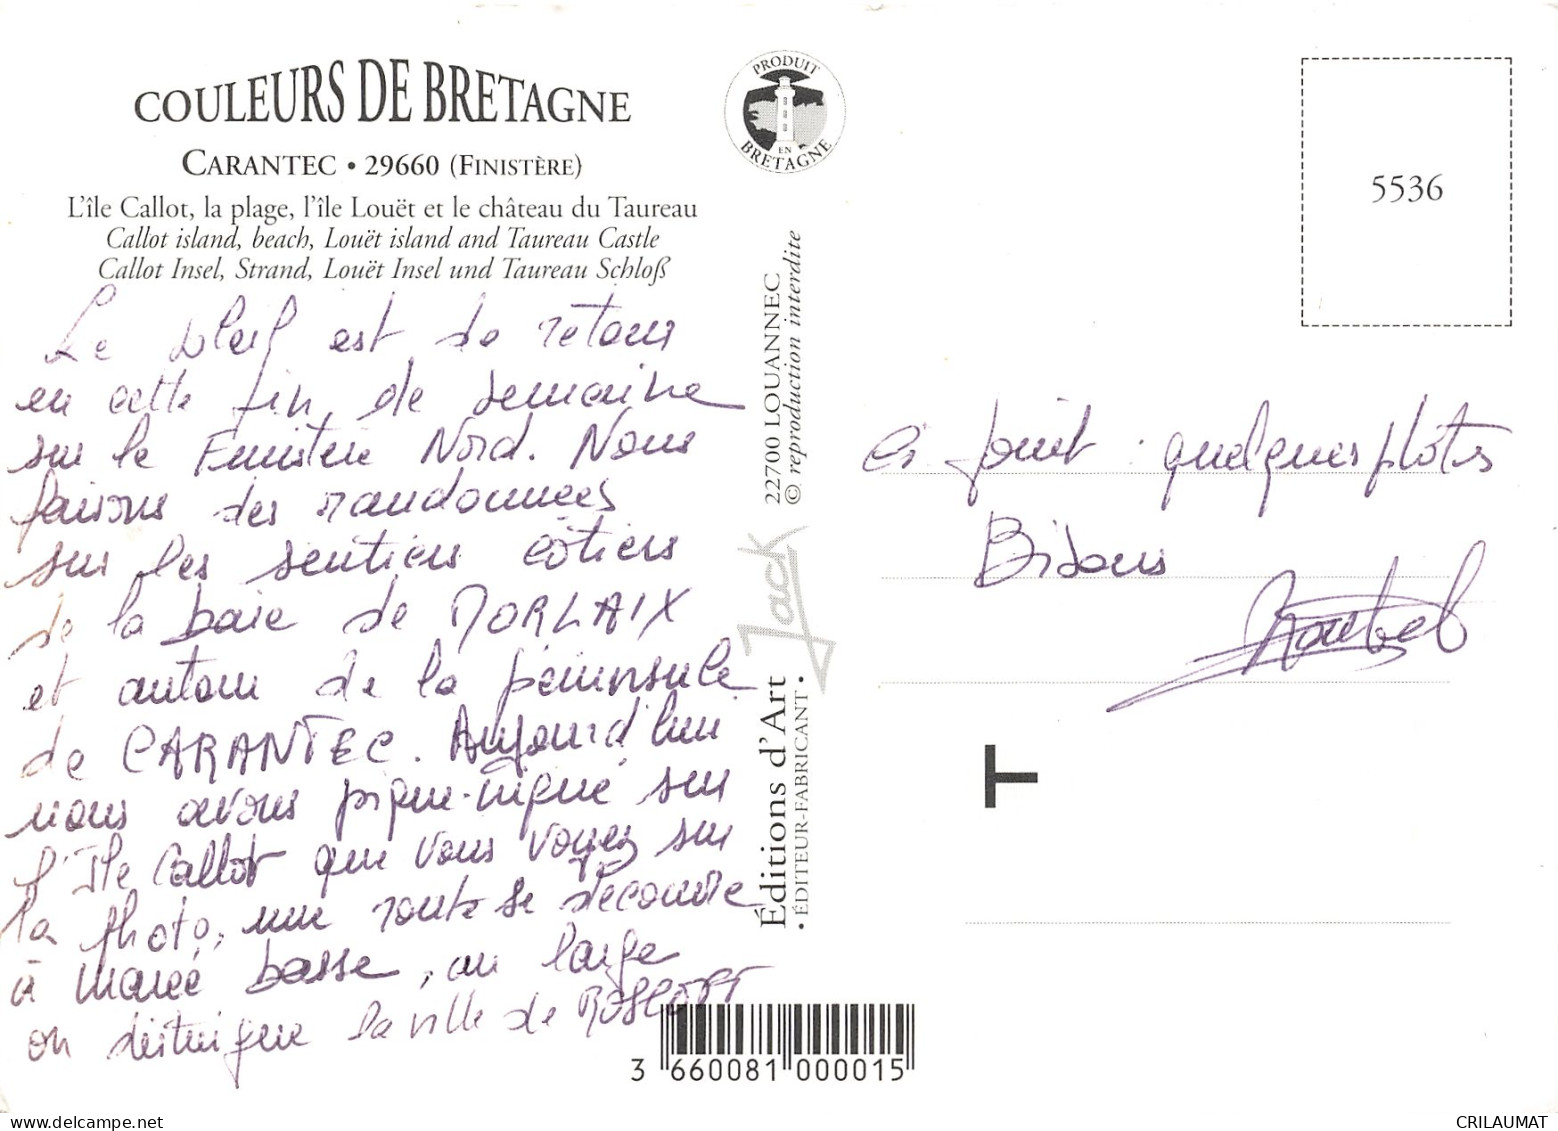 COULEURS DE BRETAGNE
CARANTEC • 29660 (FINISTÈRE)
L'île Callot, la plage, l'île Louët et le château du Taureau
Callot island, beach, Louët island and Taureau Castle
Callot Insel, Strand, Louët Insel und Taureau Schloß
Le soleil est de retour
en cette fin de semaine
sur le Finistère Nord. Nous
faisons des randonnées
sur les sentiers côtiers
de la baie de MORLAIX
et autour de la péninsule
de CARANTEC. Aujourd'hui
nous avons pique-niqué sur
l'Ile Callot que vous voyez sur
la photo, une route se découvre
à marée basse, au large
on distingue la ville de ROSCOFF
3 660081 000015
PRODUIT
EN
BRETAGNE
22700 LOUANNEC
© reproduction interdite
Jack
Éditions d'Art
• ÉDITEUR-FABRICANT •
5536
ci joint : quelques photos
Bisous
T
CRILAUMAT